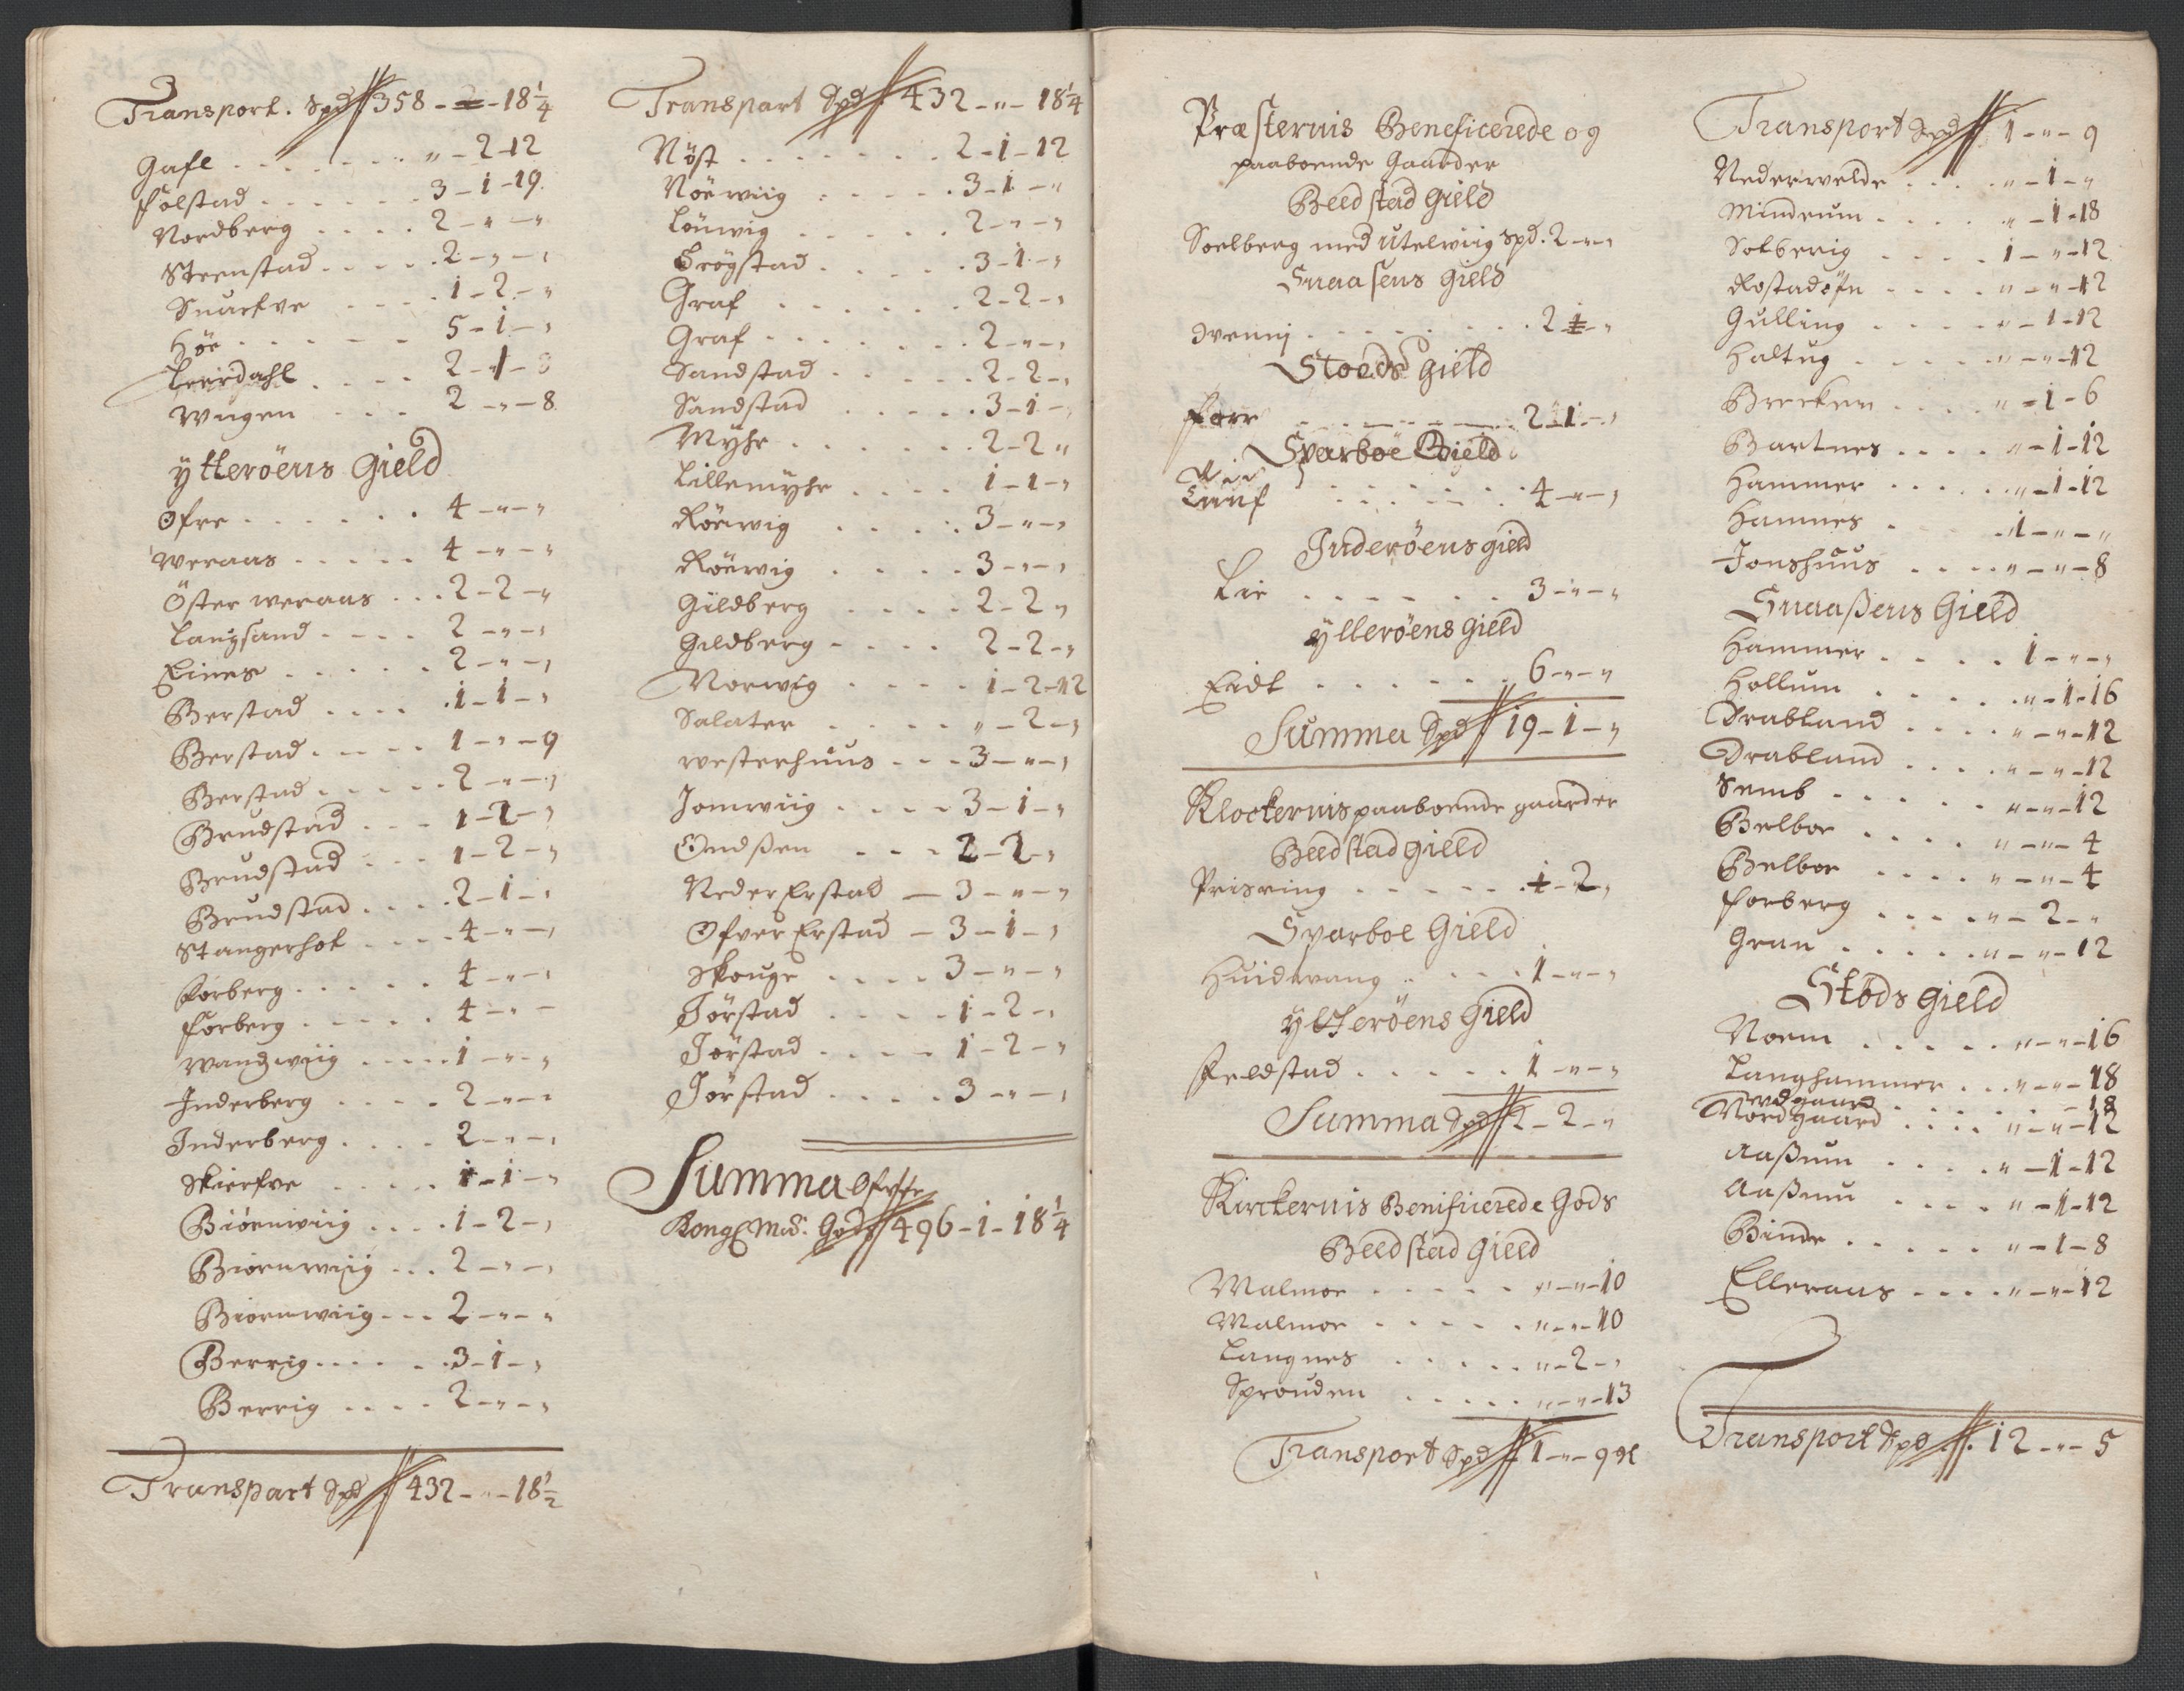 Transport. Spd 358 - " - 18 1/4
Gafl . . . . . . . " - 2 - 12
Følstad . . . . . . 3 - 1 - 19
Nordberg . . . . 2 - " - "
Steenstad . . . . . 2 - " - "
Snarfve . . . . 1 - 2 - "
Høe . . . . . . 5 - 1 - "
Leerdahl . . . . 2 - 1 - 3
Wugen . . . . 2 - " - 8
ÿtterøens Gield
Ofre . . . . . . . 4 - " - "
Weraas . . . . . 4 - " - "
Öster weraas . . . 2 - 2 - "
Langsand . . . . 2 - " - "
Eines . . . . . . 2 - " - "
Berstad . . . . . 1 - 1 - "
Berstad . . . . . 1 - " - 9
Berstad . . . . . 2 - " - "
Brudstad . . . 1 - 2 - "
Brudstad . . . 1 - 2 - "
Brudstad . . . . 2 - 1 - "
Stangerholt . . . . 4 - " - "
Forberg . . . . . 4 - " - "
Forberg . . . . . 4 - " -
Wandzwiig . . . . . 1 - " - "
Inderberg . . . . 2 - " - "
Inderberg . . . . 2 - " - "
Skierfve . . . . . 1 - 1 - "
Biörnwiig . . . . 1 - 2 - "
Biornwiig . . . 2 - " - "
Biornwiig . . . 2 - " - "
Berrig . . . . . . 3 - 1 - "
Berrig . . . . 2 - " - "
Transpart Spd 432 - " - 18 1/2
Transpart Spd. 432 - " - 18 1/4
Nöst . . . . . . . . 2 - 1 - 12
Nöewiig . . . . . 3 - 1 - "
Lönwig . . . . . 2 - " - "
Brögstad . . . . . 3 - 1 - "
Graf . . . . . . . 2 - 2 - "
Graf . . . . . . . 2 - " - "
Sandstad . . . . . 2 - 2 - "
Sandstad . . . . . 3 - 1 - "
Myhr . . . . . . . 2 - 2 "
Lillemyhr . . . . 1 - 1 - "
Röewig . . . . . 3 - " - "
Röewig . . . . . 3 - " - "
Gildberg . . . . 2 - 2 "
Gildberg . . . . 2 - 2 - "
Norwig . . . . 1 - 2 - 12
Salater . . . . " - 2 - "
westerhuus . . . 3 - " - "
Jomwiig . . . . 3 - 1 - "
Ondßen . . . 2 - 2 - "
Neder Erstad — 3 - " - "
Ofver Erstad — 3 - 1 - "
Skouge . . . . 3 - " - "
Jörstad . . . . 1 - 2 - "
Jörstad . . . . 1 - 2 - "
Jörstad . . . . 3 - " - "
Summa
Kongl Mds: Gods 496 - 1 - 18 1/4
Præsternis Beneficerede og
paaboende Gaarder
Beedstad Gield
Soelberg med Utelwiig Spd. 2 - " - "
Snaasens Gield
. . . . . . . . 2 1 - "
Stoeds Gield
Forr . . . . . . . 2 - 1 - "
Sparboe Gield
. . . . . . . 4 - " - "
Inderöens gield
Lie . . . . . . 3 - " - "
ÿtterøens gield
Eidt . . . . . . . 6 - " - "
Summa Spd. 19 - 1 - "
Klockernis paaboende gaarder
Beedstad gield
Prisring . . . . . . 1 - 2 - "
Sparboe Gield
Huidwang . . . . 1 - " - "
ÿtterøens Gield
Feldstad . . . . . 1 - " - "
Summa Spd 2 - 2 - "
Kirckernis Benificerede Gods
Beedstad gield
Malmoe . . . . . " - " - 10
Malmoe . . . . . " - " - 10
Langnes . . . . . " - 2 - "
Sprouden . . . . . " - " - 13
Transport Spd 1 - " - 9
Transport Spd 1 - " - 9
Nederwelde . . . . " - 1 - "
Mindrum . . . . " - 1 - 18
Solberig . . . . 1 - " - 12
Rostadöfn . . . . " - " - 12
Gulling . . . . . " - 1 - 12
Haltug . . . . . " - " - 12
Brecken . . . . " - 1 - 6
Bartnes . . . . " - 1 - 12
Hammer . . . . . " - 1 - 12
Hamnes . . . . 1 - " - "
Jonshuus . . . . " - " - 8
Snaaßens Gield
Hammer . . . . 1 - " - "
Hollum . . . . . " - 1 - 16
Drabland . . . . " - " - 12
Drabland . . . . " - " - 12
Semb . . . . . . " - " - 12
Belboe . . . . " - " - 4
Belboe . . . . " - " - 4
Forberg . . . . " - 2 - "
Gran . . . . . . " - " - 12
Stods gield
Noem . . . . . " - " - 16
Langhammer . . . " - " - 18
. . . . - 18
Nordgaard . . . . " - " - 12
Aaßum . . . . " - 1 - 12
Aaßum . . . . " - 1 - 12
Binde . . . . . " - 1 - 8
Elleraas . . . . " - " - 12
Transport Spd. 12 - " - 5